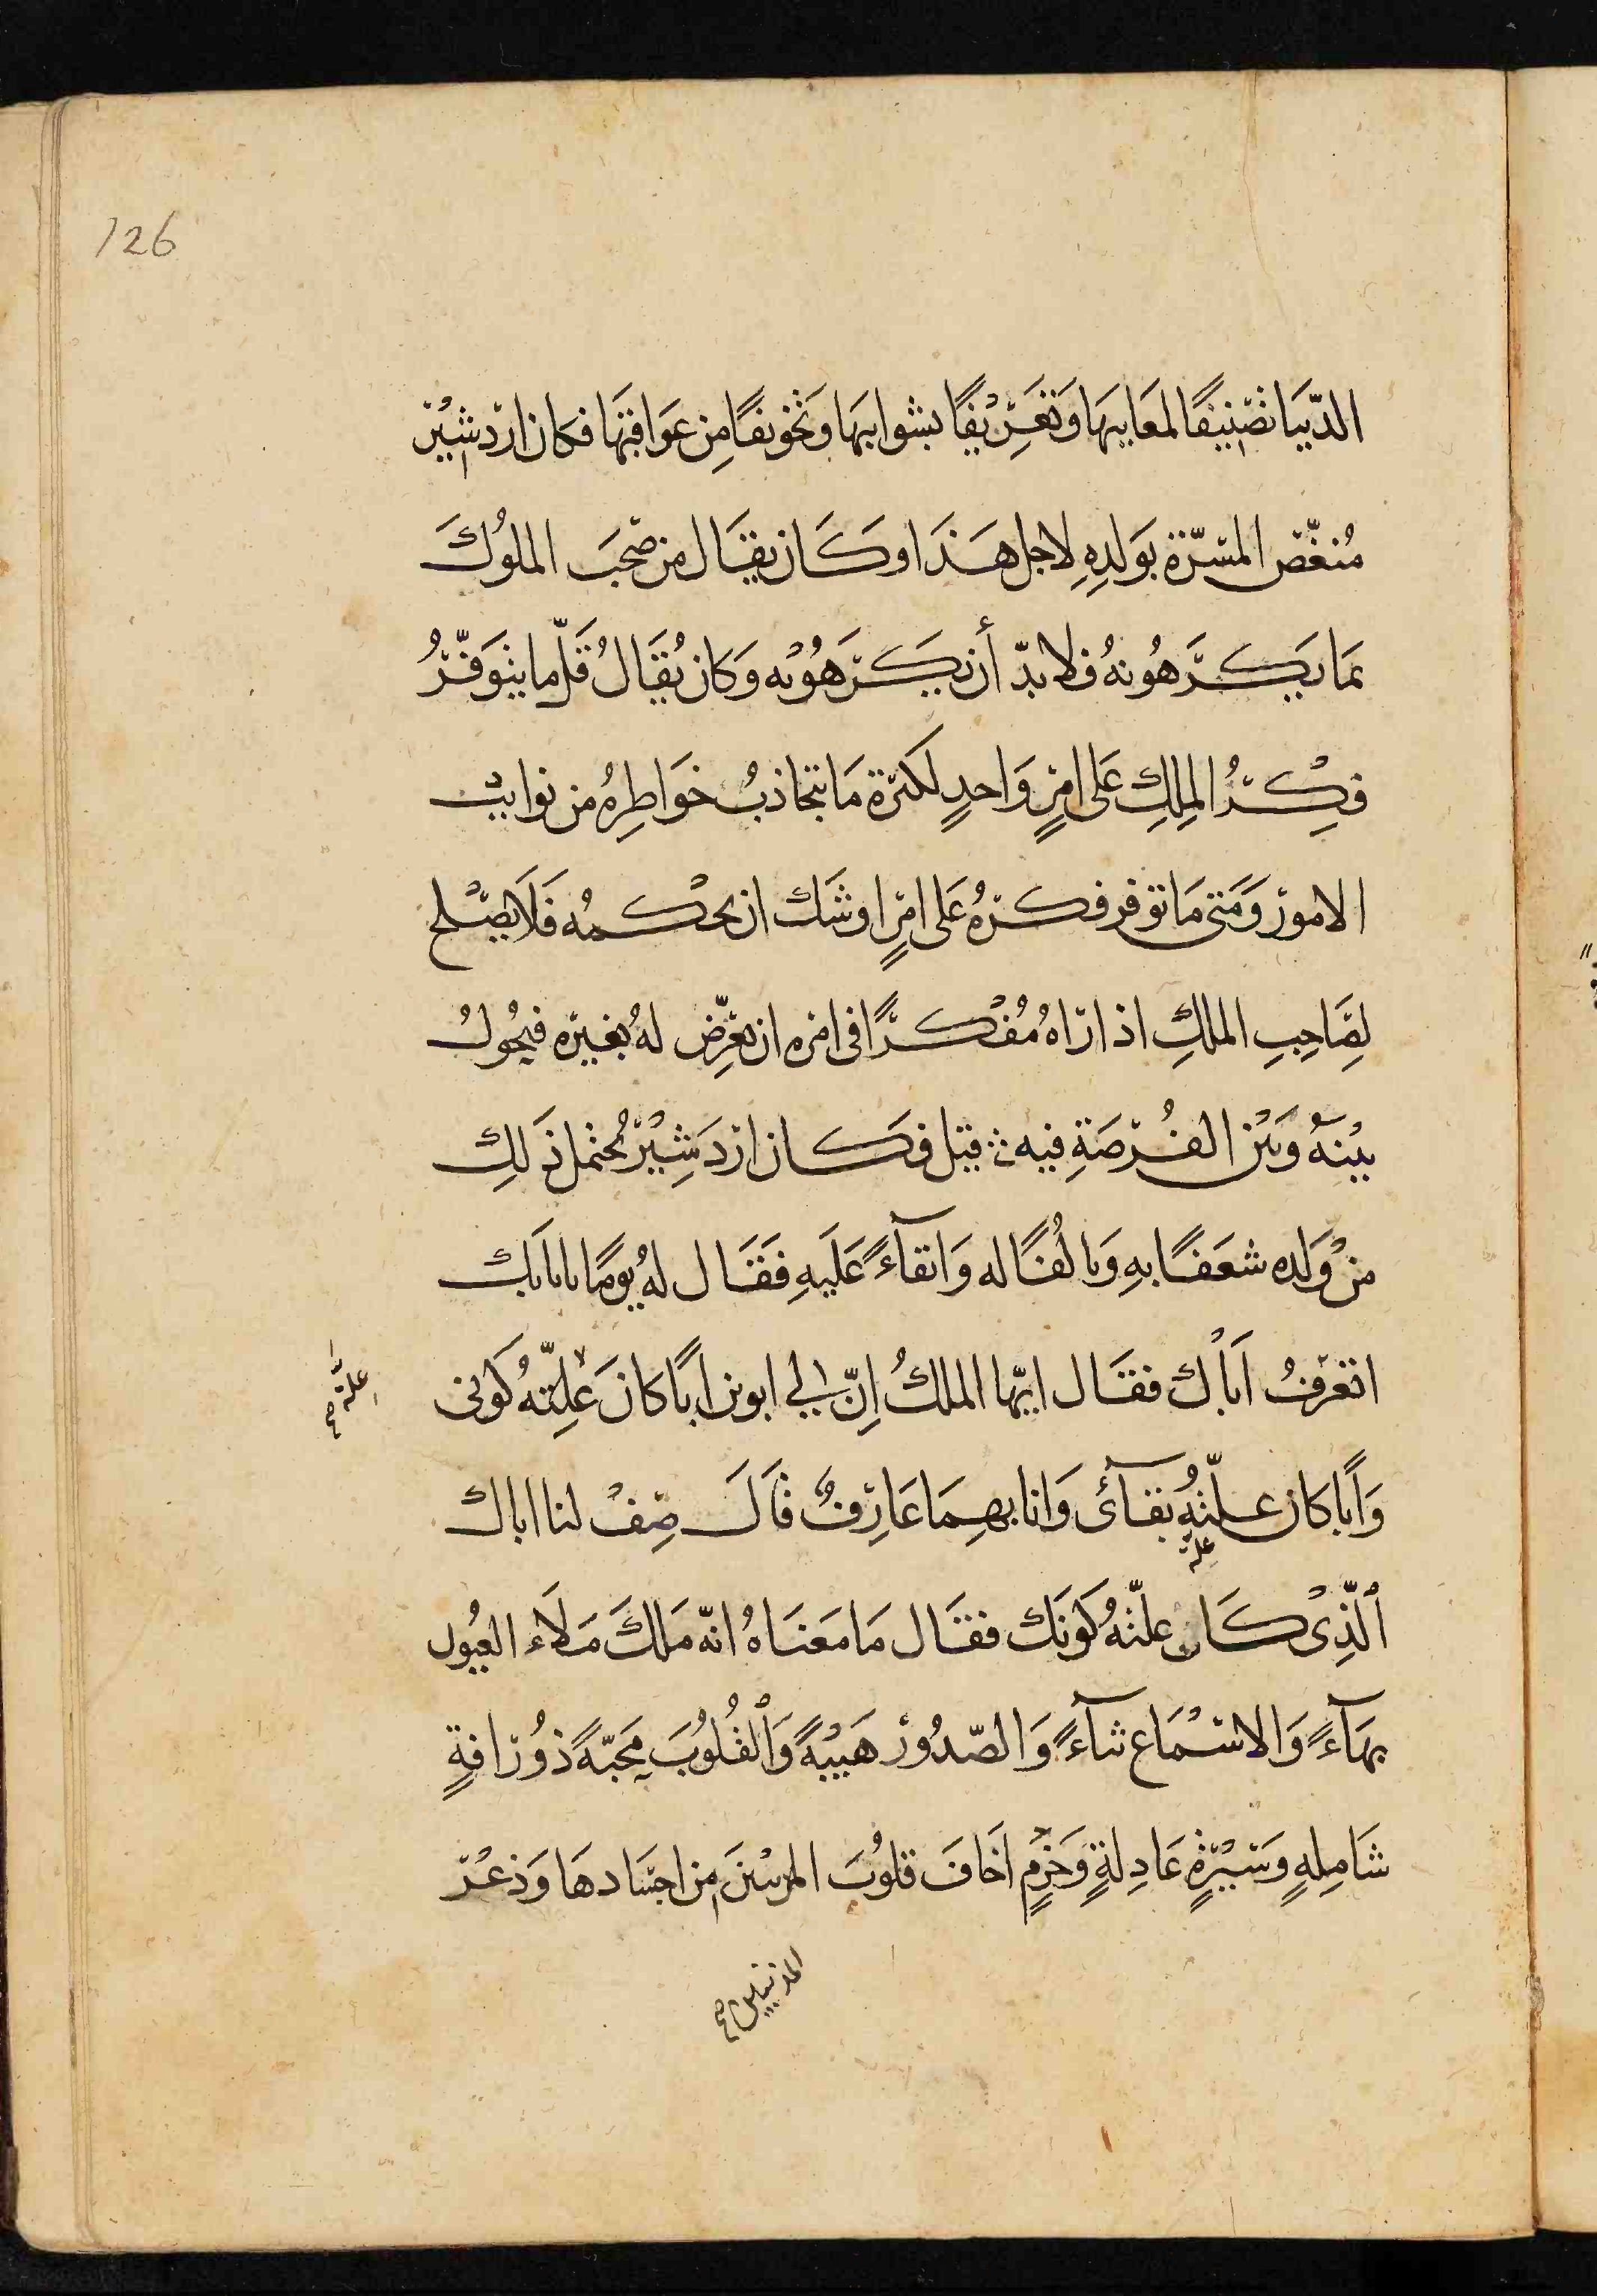 126
الدّنيَا تصْنِيفًا لمعَايبهَا وَتعَرِيْفًا بشوايبهَا وَتخْويفًا مِن عَوَاقبهَا فكان اردشيْر
مُنغّص المسَرّة بوَلدِهِ لاجل هَذَا وَكَان يقَال من صَحبَ الملوُكَ
بمَا يَكرَهُونهُ فلا بدّ أن يَكرَهُوْه وَكان يُقَالُ قَلّ ما يتوَفّرُ
فِكْرُ الملِكِ عَلى امْرٍ وَاحدٍ لكثرة مَا يتجاذبُ خوَاطِرهُ من نوايب
الامورْ وَمَتى مَا توفر فكرهُ عَلى امْرٍ اوشَك ان يحْكمُه فَلَا يصْلح
لِصَاحِبِ الملكِ اذا رَاهُ مُفْكرًا فى امْره ان يعَرّض لهُ بغيره فيحُولُ
بيْنهُ وَبَيْن الفُرصَةِ فيه ؞ قيل فَكان اردَشِيْر يُحتمل ذَلِك
منْ وَلَده شعَفًا بهِ وَبالُفًا له وَابقآءً عَلَيهِ فَقَال لهُ يومًا يا بابَك
اتعَرفُ اَبَاْك فقَال ايّها الملكُ اِنّ لي ابوين ابًا كانَ عِلّتهُ كَونى
علّة صح
وَابًا كان علّتُهُ بقآئى وَانا بهِمَا عَارِفٌ قَالَ صِفْ لنا اباك
علة
الّذِىْ كَان علّتهُ كَونَك فقَال مَا مَعنَاهُ انّه مَلكٌ مَلَاء العيُون
بهَآءً وَالاسْمَاع ثنآءً وَالصّدُورْ هَيْبَةً وَالْقُلُوُبَ مَحَبّةً ذوُ رَافةٍ
شَامِلهٍ وَسِيْرَةٍ عَادِلةٍ وَحَزْمٍ اَخَافَ قلوُبَ المريْنَ من اجسَادهَا وَذعْر
المذنبين صح